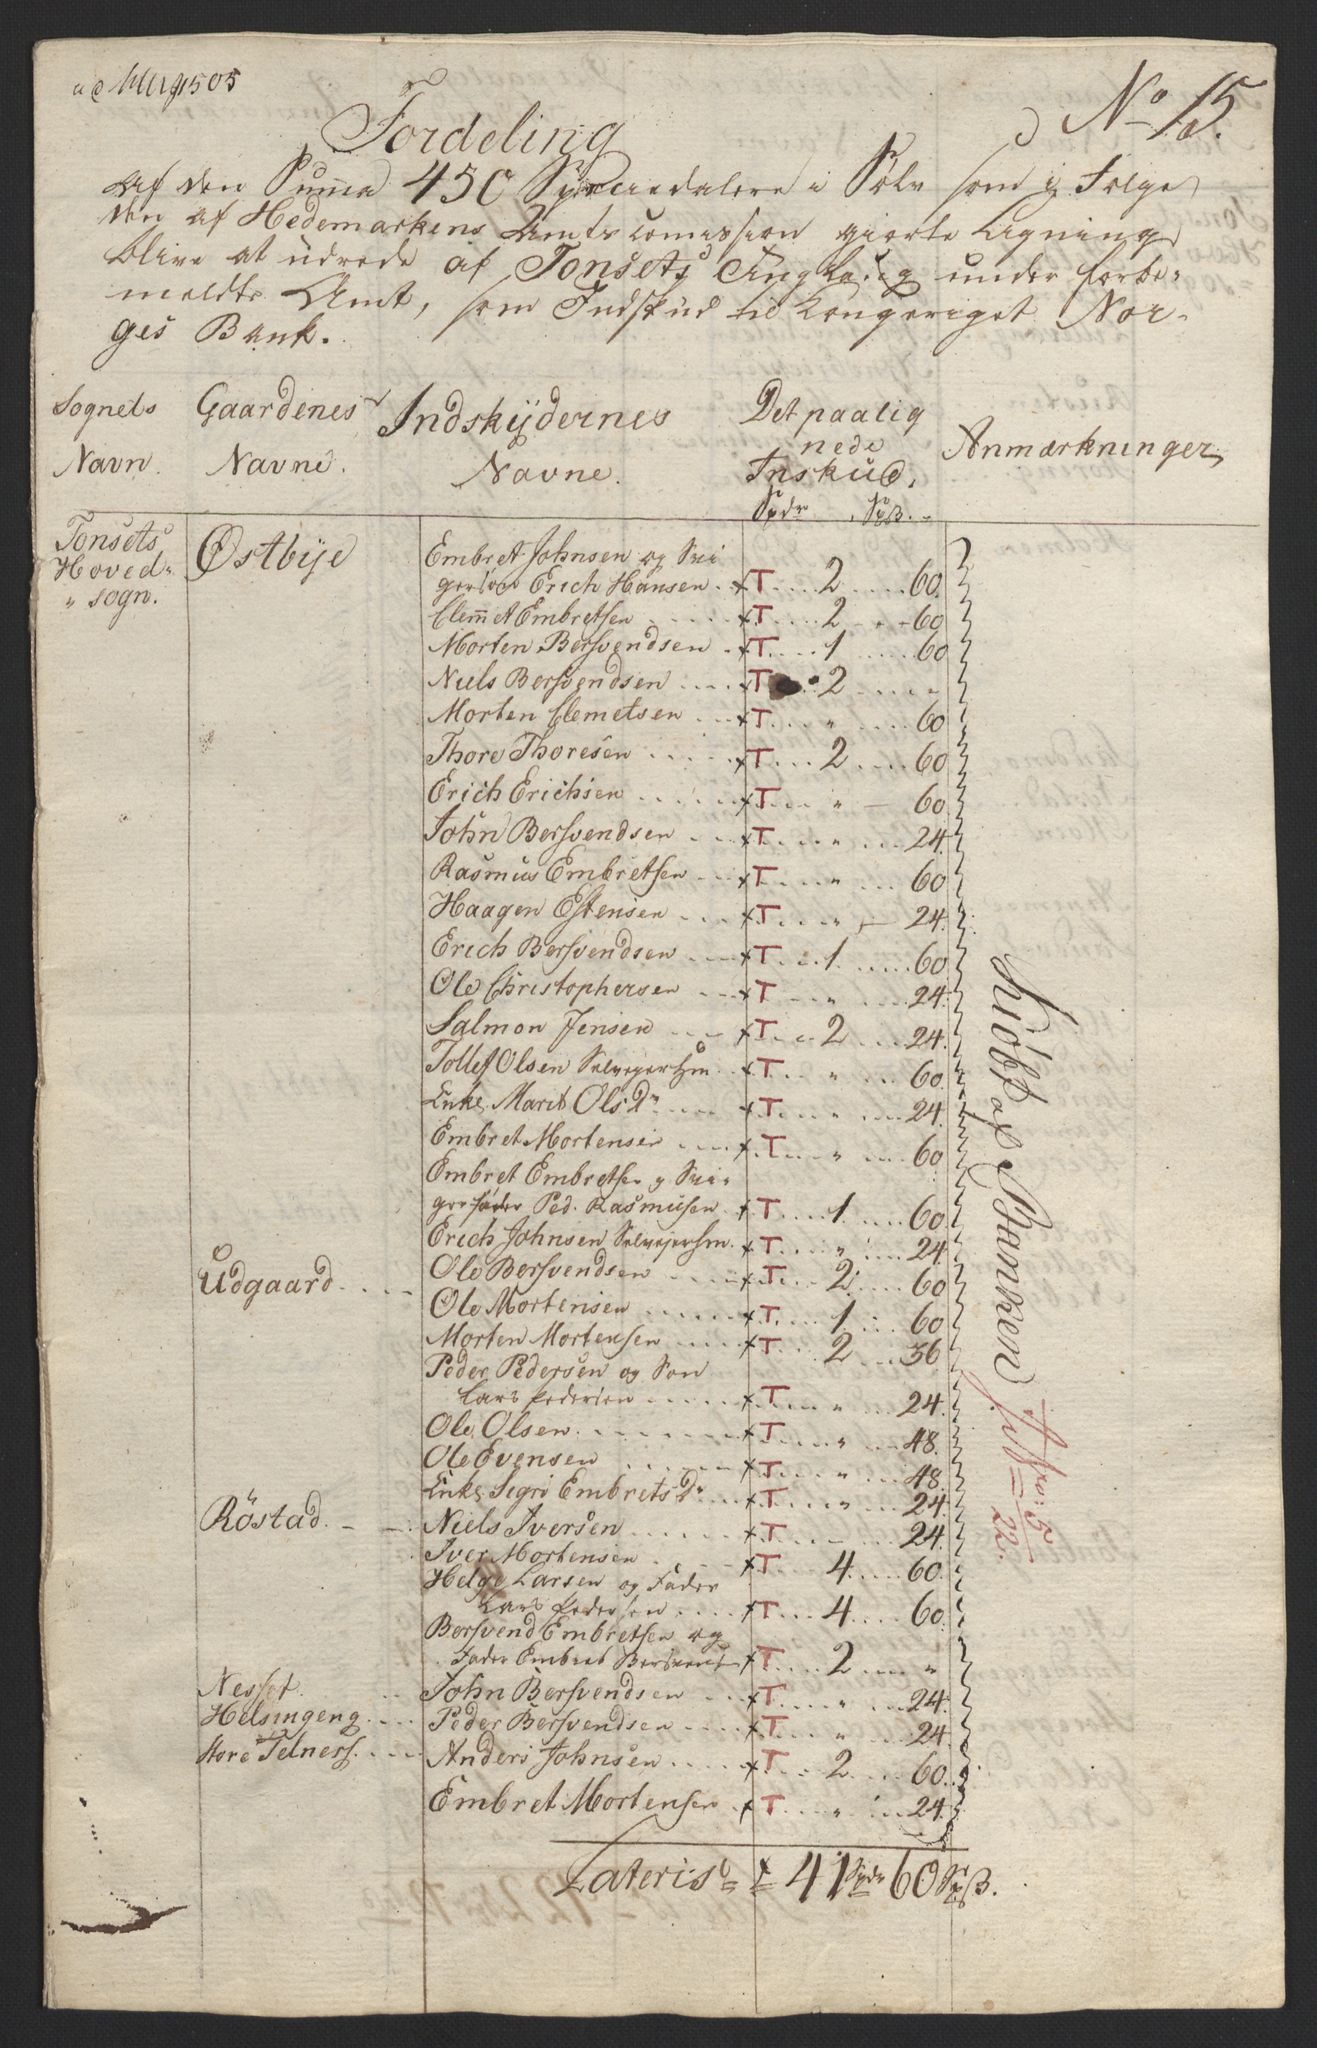 No 15.
Fordeling
Af den Summa 450 Speciedalere i Sølv som i Følge
den af Hedemarkens Amts Comission giorte Ligning
blive at udrede af Tonsets Tinglaug under forbe-
meldte Amt, som Indskud til Kongeriget Nor-
ges Bank.
Sognets Navn. Gaardenes Navne. Indskÿdernes Navne. Det paalig nede Inskud, Spdr. Spß. Anmærkninger
Tonsets Hoved- sogn. Østbÿe Embret Johnsen og Svi
gersøn Erich Hansen x T 2 60.
Clemmet Embretsen x T 2 60
Morten Bersvendsen x T 1 60
Niels Bersvendsen x T 2 "
Morten Clemetsen x T " 60
Thore Thoresen x T 2 60
Erich Erichsen x T " 60
John Bersvendsen x T " 24.
Rasmus Embretsen x T " 60
Haagen Estensen x T " 24.
Erich Bersvendsen x T 1 60
Ole Christophersen x T " 24.
Salmon Jensen x T 2 24.
Tollef Olsen Selvejer Hm x T " 60.
Enke Marit Ols Dr x T " 24.
Embret Mortensen x T " 60
Embret Embretsen og Svi-
gerfader Ped. Rasmusen x T 1 60
Erich Johnsen Selvejer Hm. x T " 24.
Udgaard Ole Bersvendsen x T 2 60
Ole Mortensen x T 1 60
Morten Mortensen x T 2 36
Peder Pedersen og Søn
Lars Pedersen x T " 24.
Ole Olsen x T " 48.
Ole Evensen x T " 48.
Enke Segri Embrets Dr x T " 24.
Röstad. Niels Iversen x T " 24.
Iver Mortensen x T 4 60
Helge Larsen og Fader
Lars Pedersen x T 4 60
Bersvend Embretsen og
Fader Embret Bersvends x T 2 "
Nesset John Bersvendsen x T " 24.
Helsingeng Peder Bersvendsen x T " 24.
Store Telness. Anders Johnsen x T 2 60
Embret Mortensen x T " 24
Lateris 41 Spdr 60 Spß.
Kiøbt af Banken
5
22.